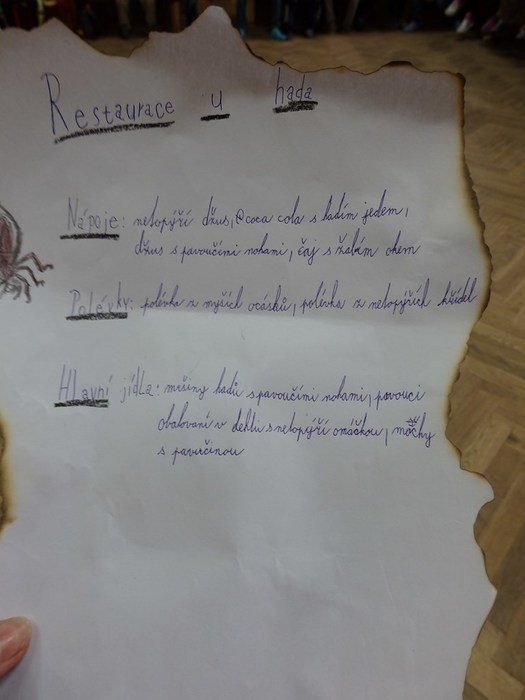 Restaurace u hada
Nápoje: netopýří džus, coca cola s hadím jedem,
džus s pavoučími nohami, čaj s žabím okem
Polévky: polévka z myších ocásků, polévka z netopýřích křídel
Hlavní jídla: mišiny hadů s pavoučími nohami, pavouci
obalovaní v dehtu s netopýří omáčkou,
s pavučinou